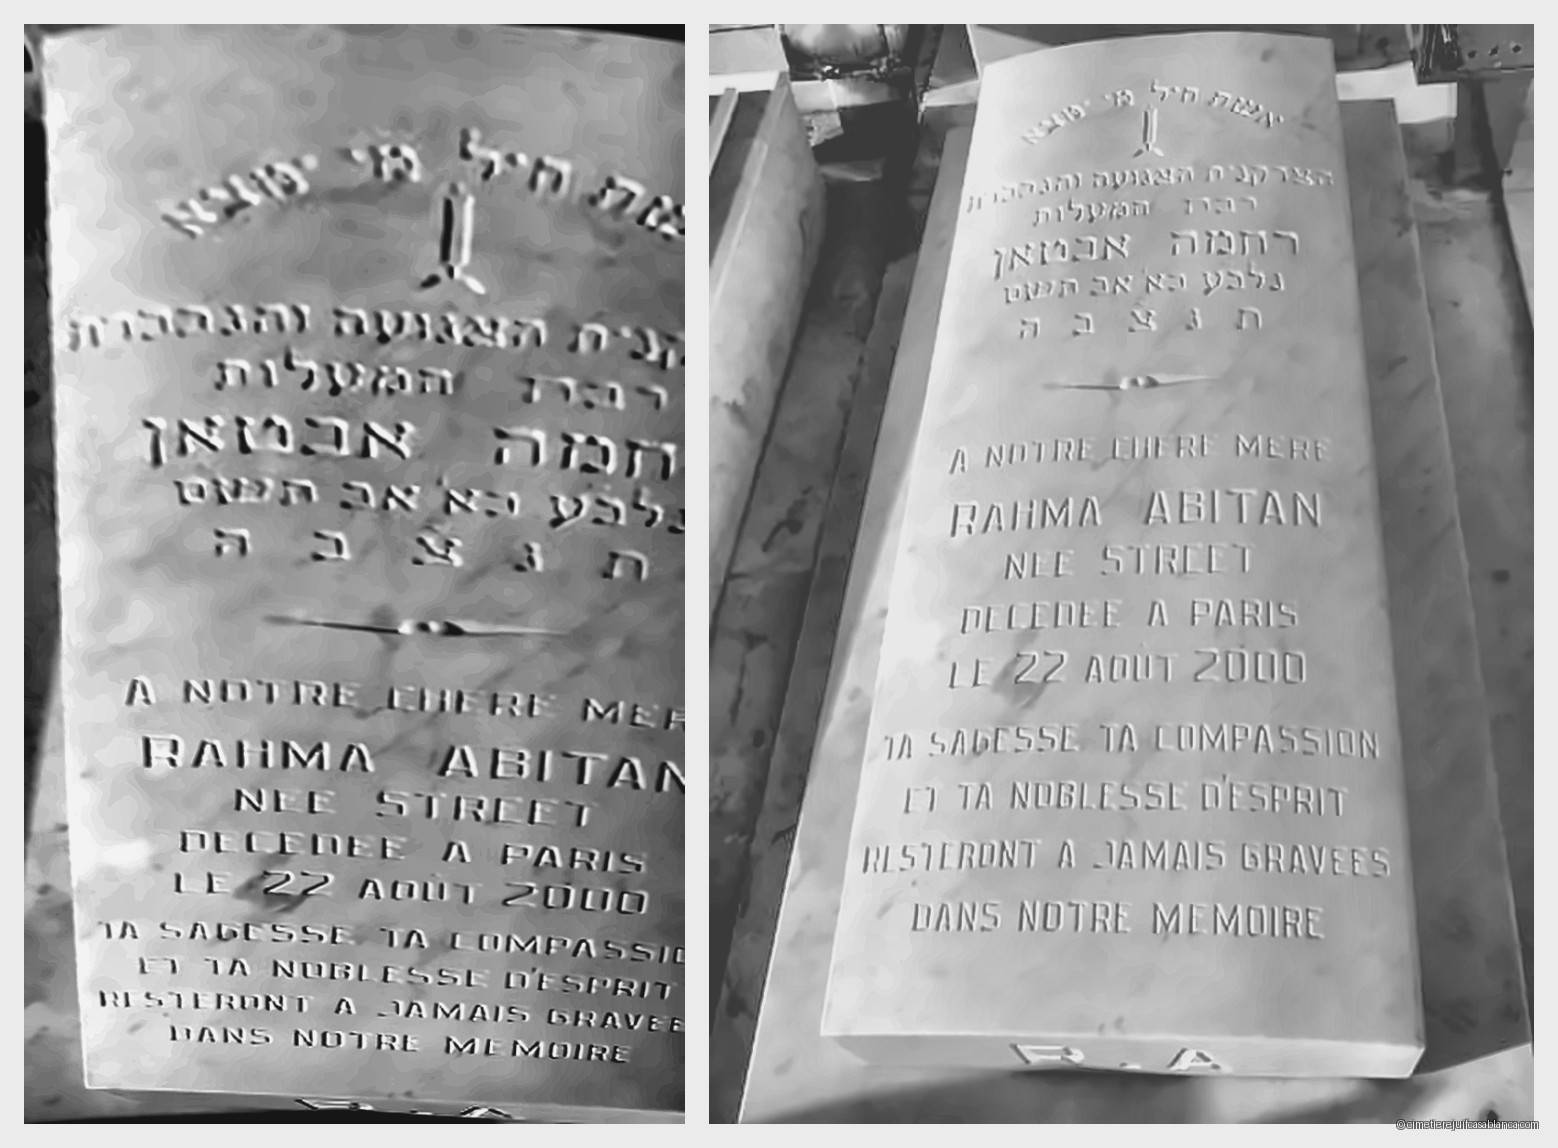 אשת חיל מי ימצא
הצנועה והנכבדת
רבת המעלות
רחמה אבטאן
נלבע כא אב תשס
ת נ צ ב ה
A NOTRE CHERE MER
RAHMA ABITAN
NEE STREET
DECEDEE A PARIS
LE 22 AOÛT 2000
TA SAGESSE TA COMPASSIO
ET TA NOBLESSE D'ESPRIT
RESTERONT A JAMAIS GRAVEE
DANS NOTRE MEMOIRE
R . A
אשת חיל מי ימצא
הצדקנית הצנועה והנכבדת
רבת המעלות
רחמה אבטאן
נלבע כא אב תשס
ת נ צ ב ה
A NOTRE CHERE MERE
RAHMA ABITAN
NEE STREET
DECEDEE A PARIS
LE 22 AOÛT 2000
TA SAGESSE TA COMPASSION
ET TA NOBLESSE D'ESPRIT
RESTERONT A JAMAIS GRAVEES
DANS NOTRE MEMOIRE
R . A
©cimetierejuifcasablanca.com